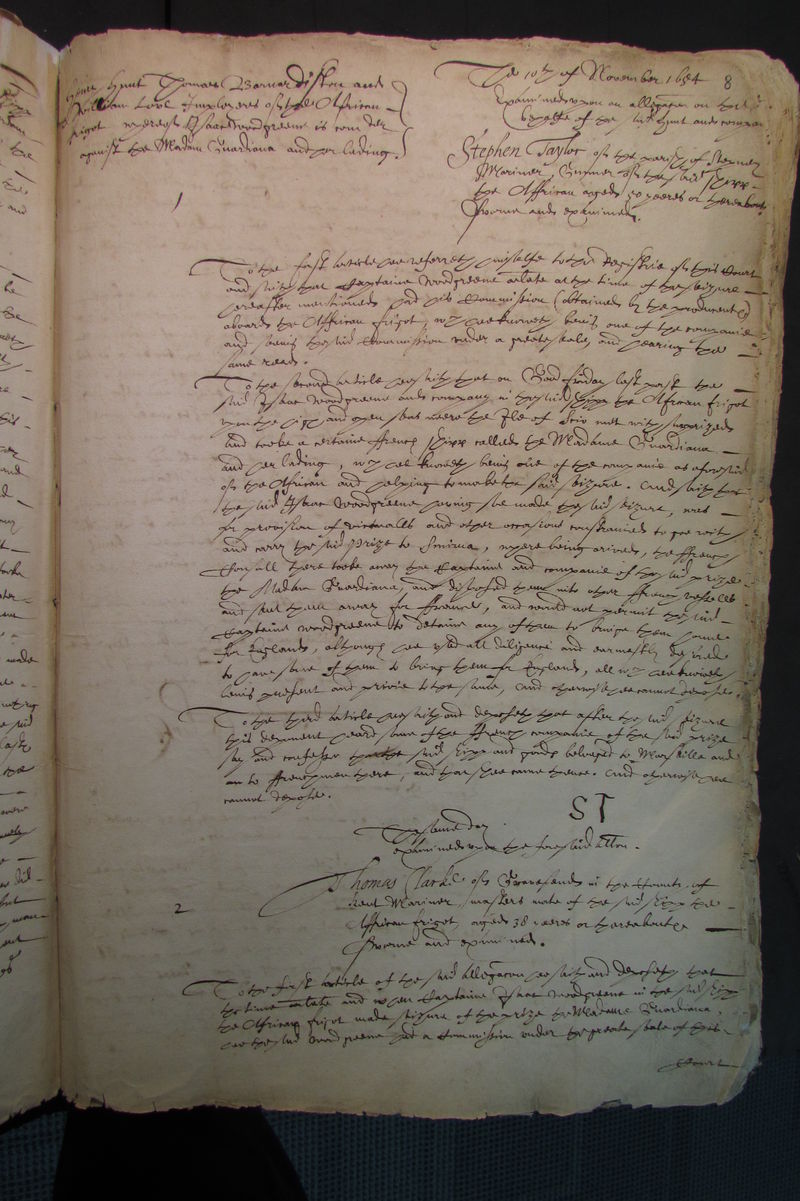 The 10th of November 1654 8
Examined upon an allegation on the
behalfe of the said Hunt and company
Hunt Thomas Barnardiston and
William Love Imployers of the African
frigot whereof Isaac Woodgreene is comander
against the Madam Guardiana and her lading.
1
Stephen Taylor of the parish of Stepney
Mariner, Gunner of the said shipp
the Affrican aged 30 yeeres or thereabouts
Sworne and examined.
To the first article hee referreth himselfe to the Registrie of this Court
and saith that Captaine Woodgreene arlate at the time of the seizure
hereafter mentioned had his Commission (obtained by the producents)
aboard the Affrican frigot, which hee knoweth being one of the companie
and seeing the said Commission under a greate seale, and hearing the
same read.
To the second article hee saith that on Good friday last past the
said Isaac Woodgreene and company in the said shipp the African frigot
upon the high and open seas neere the Ile of Scio met with surprized
and tooke a certaine ffrench shipp called the Madame Guardiana
and her lading, which hee knoweth being one of the companie as aforesaid
of the African and helping to make the said seizure. And saith that
the said Isaac Woodgreene having soe made the said seizure, was
for provision of victualls and other occasions constrained to goe with
and carry the said Prize to Smirna, where being arived, the ffrench
Consull there tooke away the Captaine and companie of the said prize
the Madam Guardiana, and disposed them into other ffrench vessells
and sent them away for ffrance, and would not permit the said
Captaine Woodgreene to detaine any of them to bringe them home
for England, although hee used all diligence and earnestly desired
to have some of them to bring them for England, all which hee knoweth
being present and privie to the same, And otherwise hee cannot depose.
To the third article hee saith and deposeth that after the said seizure
this deponent heard some of the ffrench companie of the said prize
say and confesse that the said shipp and goods belonged to Marseille and
to ffrenchmen there, and that shee came thence. And otherwise hee
cannot depose.
ST
The same day
examined upon the foresaid allegation.
2
Thomas Clarke of Gravesend in the County of
Kent Mariner, masters mate of the said shipp the
African frigot, aged 38 yeeres or thereaboutes
Sworne and examined.
To the first article of the said allegation hee saith and deposeth that
the time arlate and when Captaine Isaac Woodgreene in the said shipp
the African frigot made seizure of the prize the Madame Guardiana,
hee the said Woodgreene had a Commission under the greate seale of this
Court